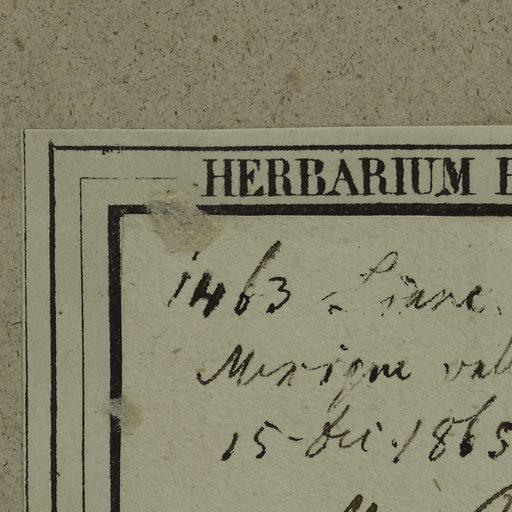 HERBARIUM
1463 Liane.
Mexique vall
15 déc. 1865